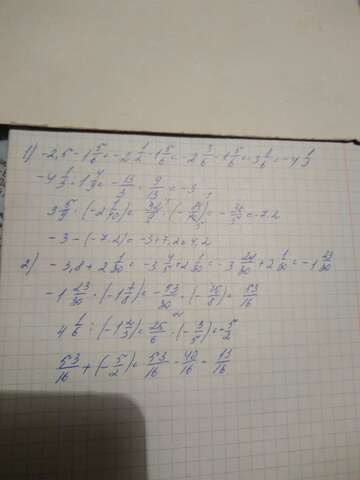 1) -2,5 - 1 5/6 = -2 1/2 - 1 5/6 = -2 3/6 - 1 5/6 = -3 8/6 = -4 1/3
-4 1/3 : 1 4/9 = -13/3 · 9/13 = -3
-3 - (-7,2) = -3 + 7,2 = 4,2
2) -3,8 + 2 1/30 = -3 4/5 + 2 1/30 = -3 24/30 + 2 1/30 = -1 23/30
-1 23/30 · (-1 7/8) = -53/30 · (-15/8) = 53/16
4 1/6 : (-1 2/3) = 25/6 · (-3/5) = -5/2
53/16 + (-5/2) = 53/16 - 40/16 = 13/16